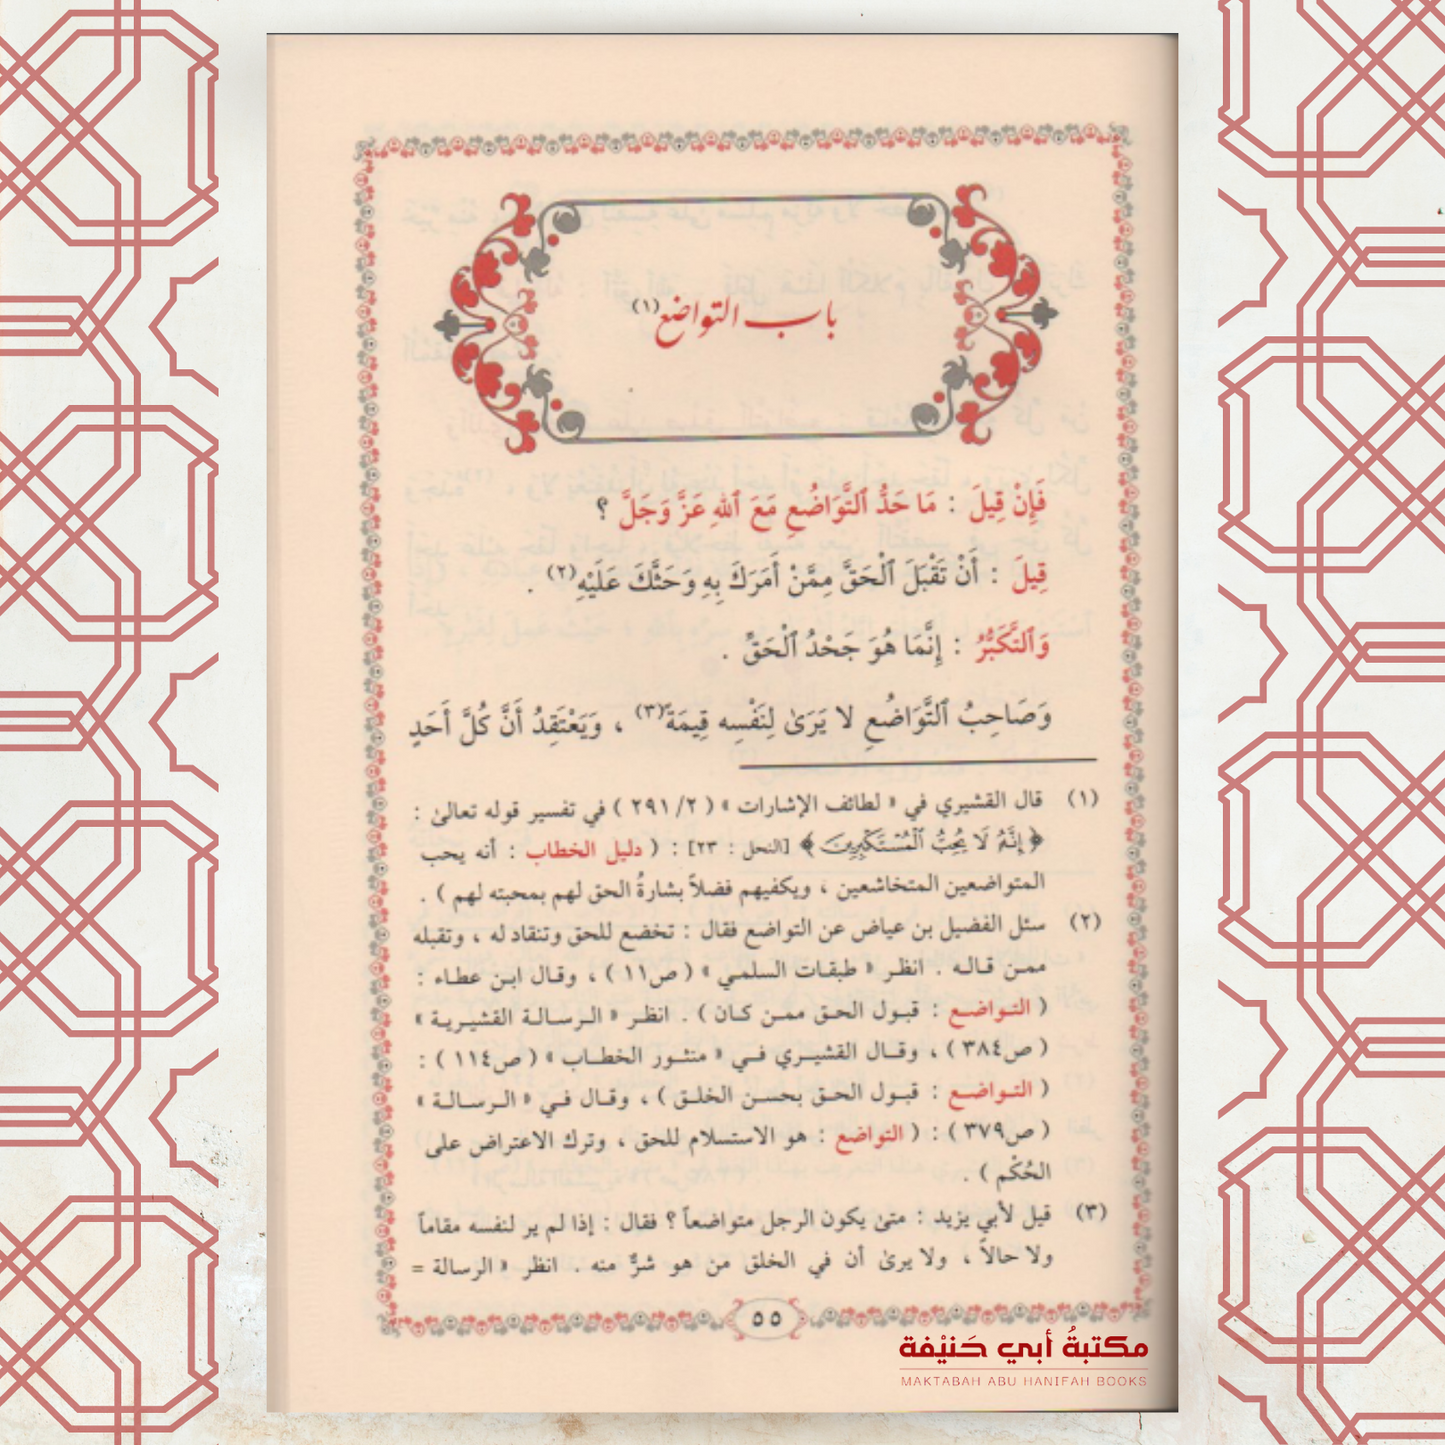 باب التواضع(١)
فَإِنْ قِيلَ : مَا حَدُّ ٱلتَّوَاضُعِ مَعَ ٱللهِ عَزَّ وَجَلَّ ؟
قِيلَ : أَنْ تَقْبَلَ ٱلْحَقَّ مِمَّنْ أَمَرَكَ بِهِ وَحَثَّكَ عَلَيْهِ(٢) .
وَٱلتَّكَبُّرُ : إِنَّمَا هُوَ جَحْدُ ٱلْحَقِّ .
وَصَاحِبُ ٱلتَّوَاضُعِ لا يَرَىٰ لِنَفْسِه قِيمَةً(٣) ، وَيَعْتَقِدُ أَنَّ كُلَّ أَحَدٍ
(١) قال القشيري في « لطائف الإشارات » ( ٢٩١/٢ ) في تفسير قوله تعالىٰ :
﴿ إِنَّهُۥ لَا يُحِبُّ ٱلْمُسْتَكْبِرِينَ ﴾ [النحل : ٢٣] : ( دليل الخطاب : أنه يحب
المتواضعين المتخاشعين ، ويكفيهم فضلاً بشارةُ الحق لهم بمحبته لهم ) .
(٢) سئل الفضيل بن عياض عن التواضع فقال : تخضع للحق وتنقاد له ، وتقبله
ممن قاله . انظر « طبقات السلمي » ( ص١١ ) ، وقال ابن عطاء :
( التواضع : قبول الحق ممن كان ) . انظر « الرسالة القشيرية »
( ص٣٨٤ ) ، وقال القشيري في « منثور الخطاب » ( ص١١٤ ) :
( التواضع : قبول الحق بحسن الخلق ) ، وقال في « الرسالة »
( ص٣٧٩ ) : ( التواضع : هو الاستسلام للحق ، وترك الاعتراض على
الحُكْم ) .
(٣) قيل لأبي يزيد : متىٰ يكون الرجل متواضعاً ؟ فقال : إذا لم ير لنفسه مقاماً
ولا حالاً ، ولا يرىٰ أن في الخلق من هو شرٌّ منه . انظر « الرسالة =
٥٥
مكتبةُ أبي حَنيْفة
MAKTABAH ABU HANIFAH BOOKS